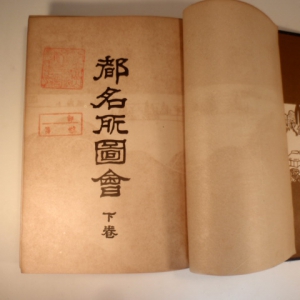 都名所圖會
下卷